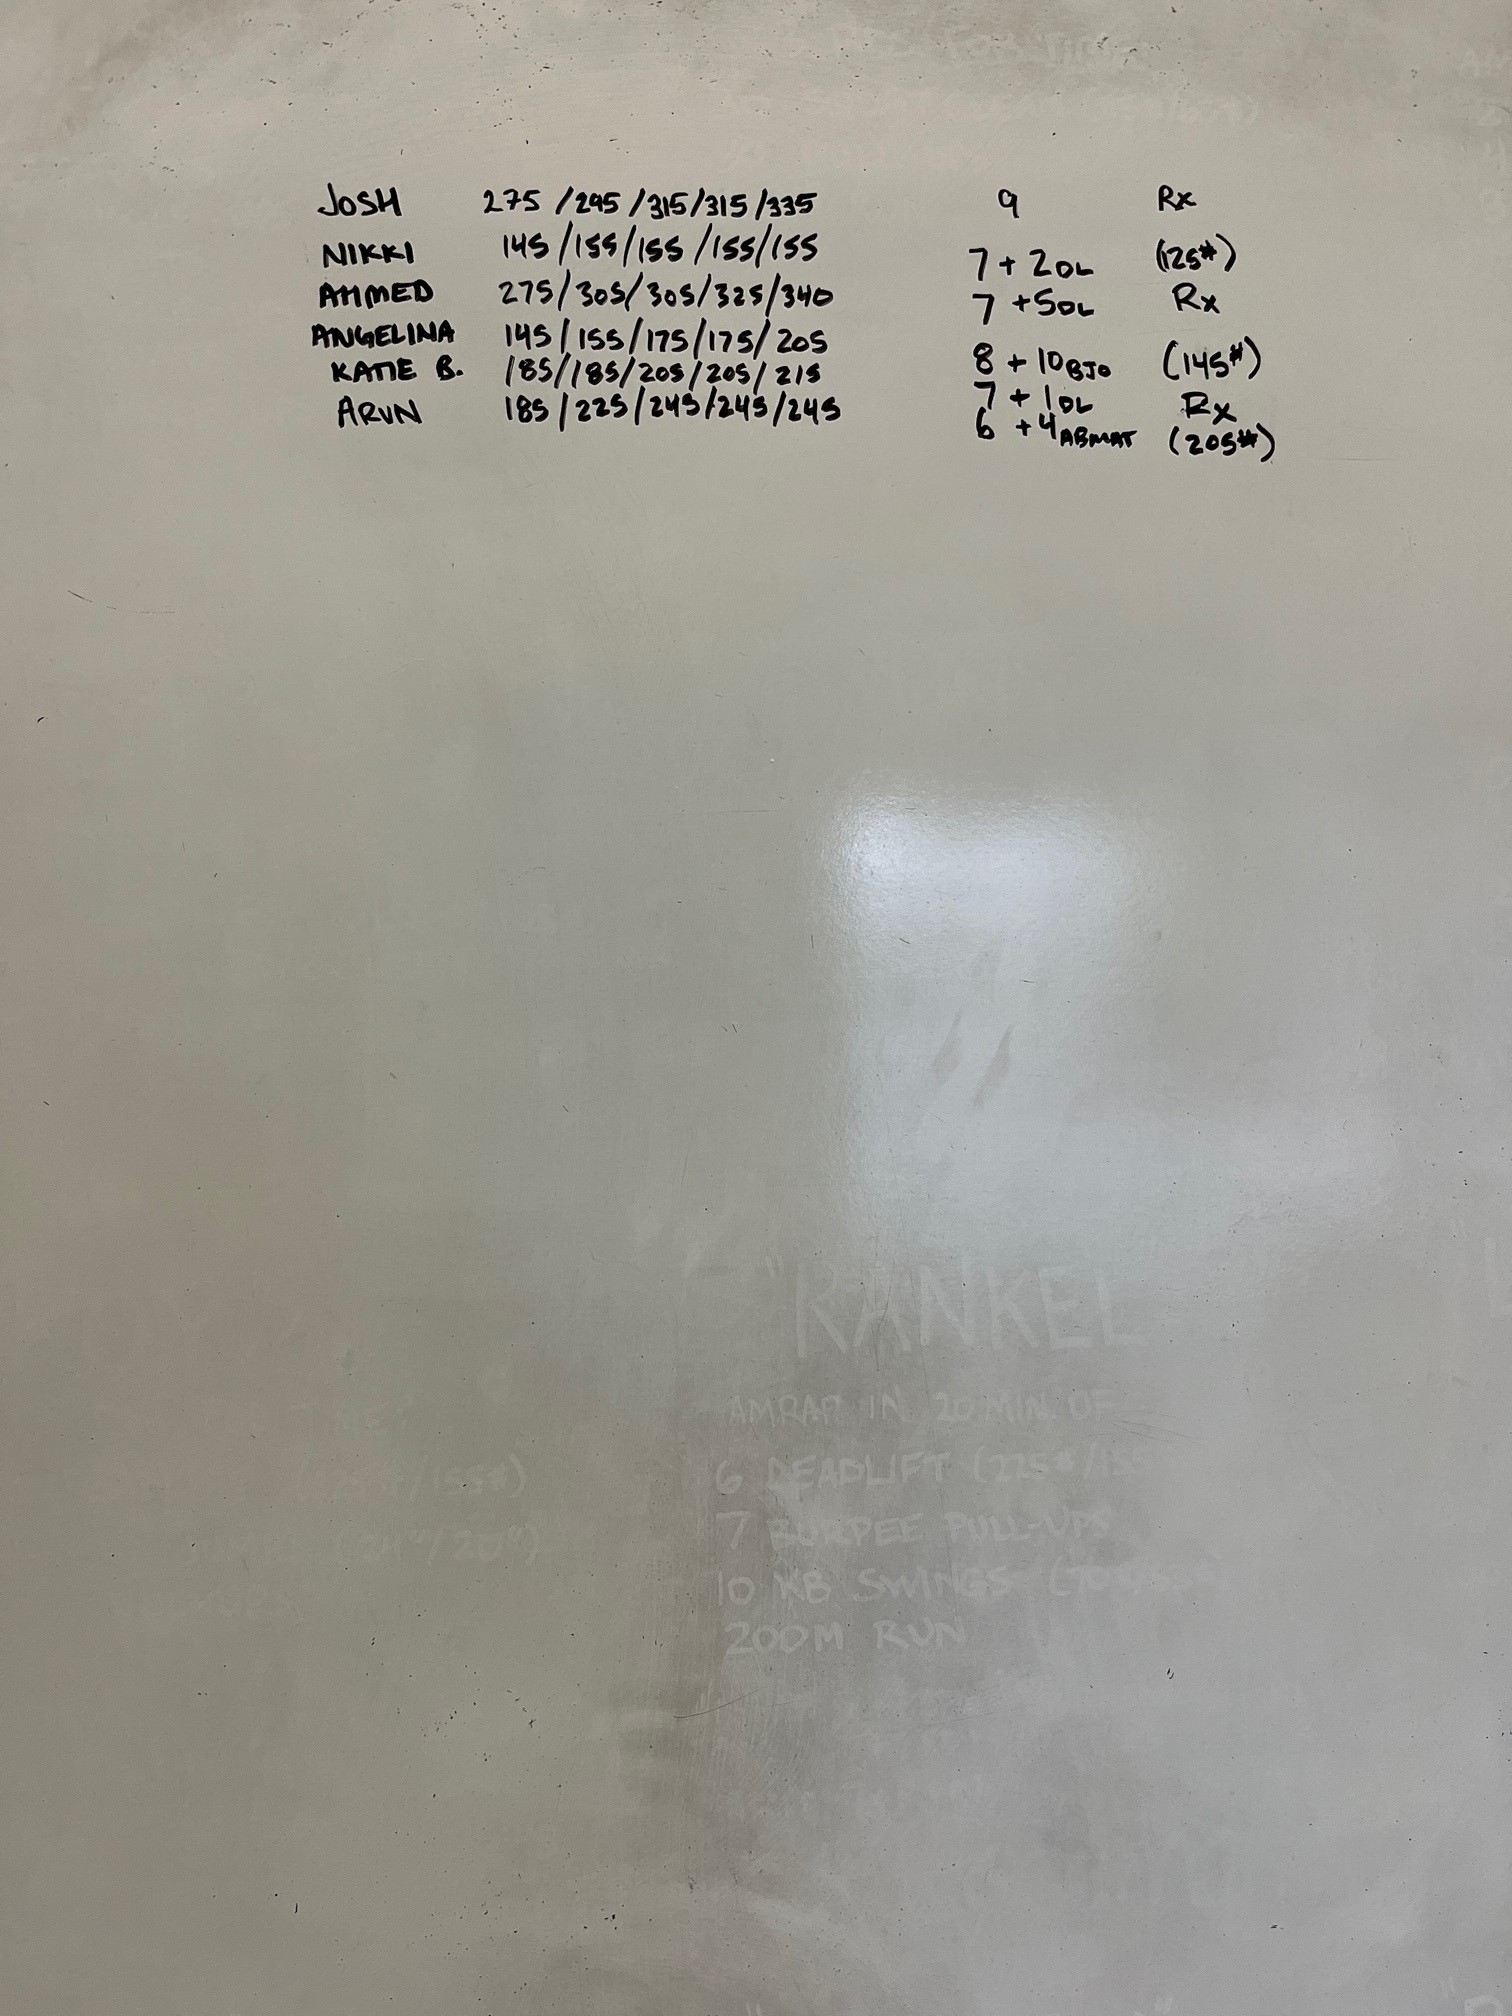 JOSH 275 / 295 / 315 / 315 / 335 9 Rx
NIKKI 145 / 155 / 155 / 155 / 155 7 + 2 DL (125#)
AHMED 275 / 305 / 305 / 325 / 340 7 + 5 DL Rx
ANGELINA 145 / 155 / 175 / 175 / 205 8 + 10 BJO (145#)
KATIE B. 185 / 185 / 205 / 205 / 215 7 + 1 DL Rx
ARUN 185 / 225 / 245 / 245 / 245 6 + 4 ABMAT (205#)
"RANKEL
AMRAP IN 20 MIN. OF
6 DEADLIFT (225#/155
7 BURPEE PULL-UPS
10 KB SWINGS
200M RUN
/155#)
(24"/20")